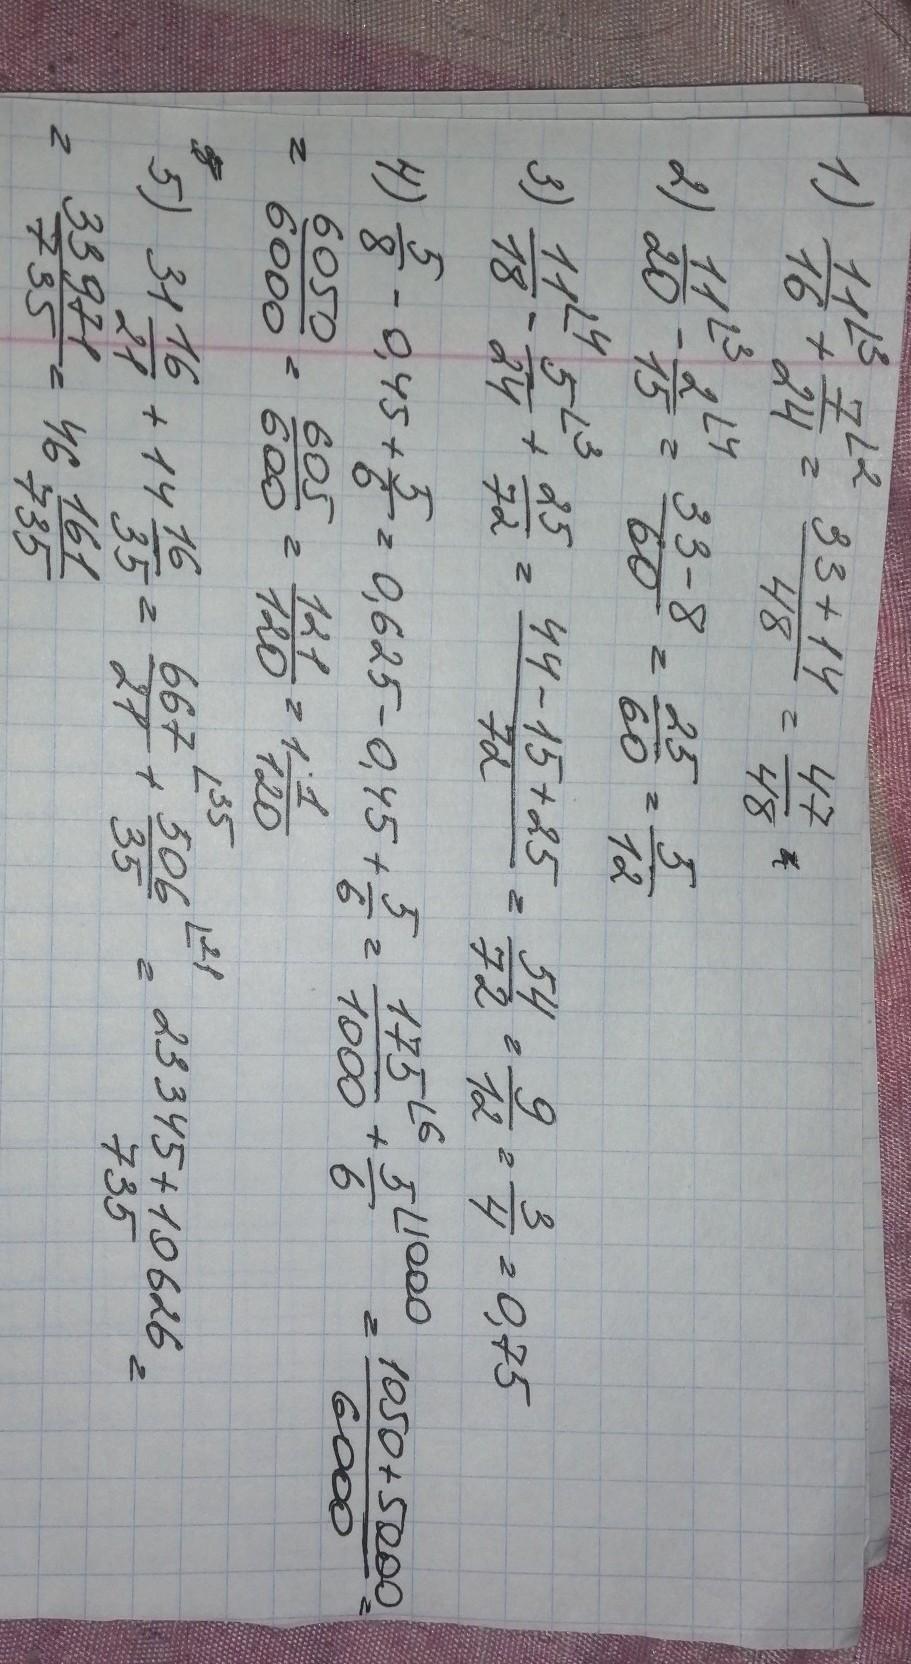 1) 11/16 ⌊3 + 7/24 ⌊2 = (33+14)/48 = 47/48
2) 11/20 ⌊3 - 2/15 ⌊4 = (33-8)/60 = 25/60 = 5/12
3) 11/18 ⌊4 - 5/24 ⌊3 + 25/72 = (44-15+25)/72 = 54/72 = 9/12 = 3/4 = 0,75
4) 5/8 - 0,45 + 5/6 = 0,625 - 0,45 + 5/6 = 175/1000 ⌊6 + 5/6 ⌊1000 = (1050+5000)/6000 =
= 6050/6000 = 605/600 = 121/120 = 1 1/120
5) 31 16/21 + 14 16/35 = 667/21 ⌊35 + 506/35 ⌊21 = (23345+10626)/735 =
= 33971/735 = 46 161/735